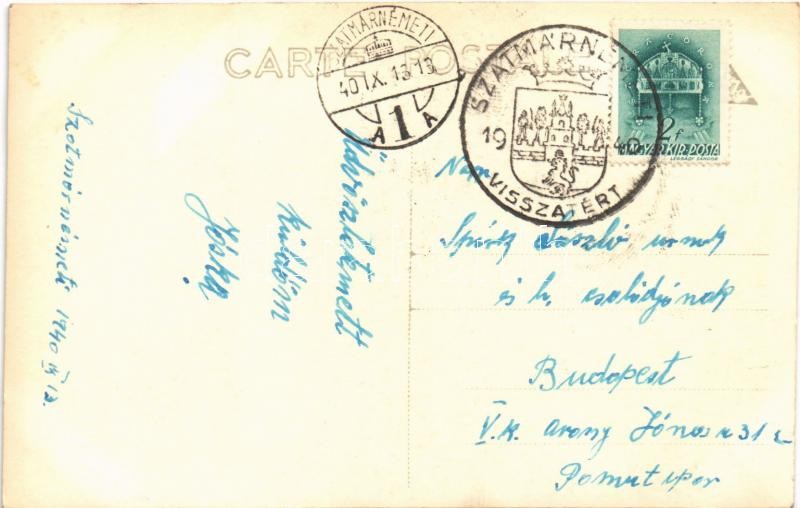 CARTE POSTALĂ
SZATMÁRNÉMETI
40 IX. 13 13
A 1 A
SZATMÁRNÉMETI
1940
VISSZATÉRT
2f
MAGYAR KIR. POSTA
LÉGRÁDY SÁNDOR
Szatmárnémeti 1940 IX 13.
Üdvözletmett
küldöm
Jóska
Nam.
László urnak
és b. családjának
Budapest
V.k. Arony János u 31